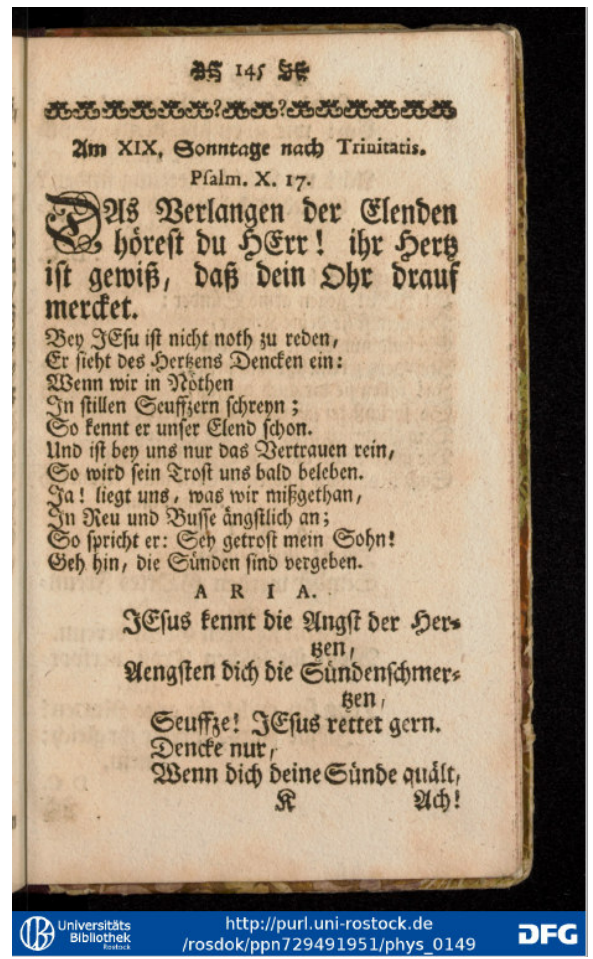 145
Am XIX. Sonntage nach Trinitatis.
Psalm. X. 17.
DAs Verlangen der Elenden
hörest du HErr! ihr Hertz
ist gewiß, daß dein Ohr drauf
mercket.
Bey JEsu ist nicht noth zu reden,
Er sieht des Hertzens Dencken ein:
Wenn wir in Nöthen
In stillen Seuffzern schreyn;
So kennt er unser Elend schon.
Und ist bey uns nur das Vertrauen rein,
So wird sein Trost uns bald beleben.
Ja! liegt uns, was wir mißgethan,
In Reu und Busse ängstlich an;
So spricht er: Sey getrost mein Sohn!
Geh hin, die Sünden sind vergeben.
ARIA.
JEsus kennt die Angst der Her-
tzen,
Aengsten dich die Sündenschmer-
tzen,
Seuffze! JEsus rettet gern.
Dencke nur,
Wenn dich deine Sünde quält,
K Ach!
Universitäts
Bibliothek
Rostock
http://purl.uni-rostock.de
/rosdok/ppn729491951/phys_0149
DFG